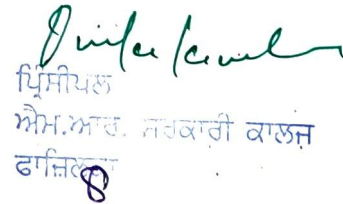 ਪ੍ਰਿੰਸੀਪਲ
ਐਮ.ਆਰ. ਸਰਕਾਰੀ ਕਾਲਜ
ਫਾਜ਼ਿਲਕਾ
8